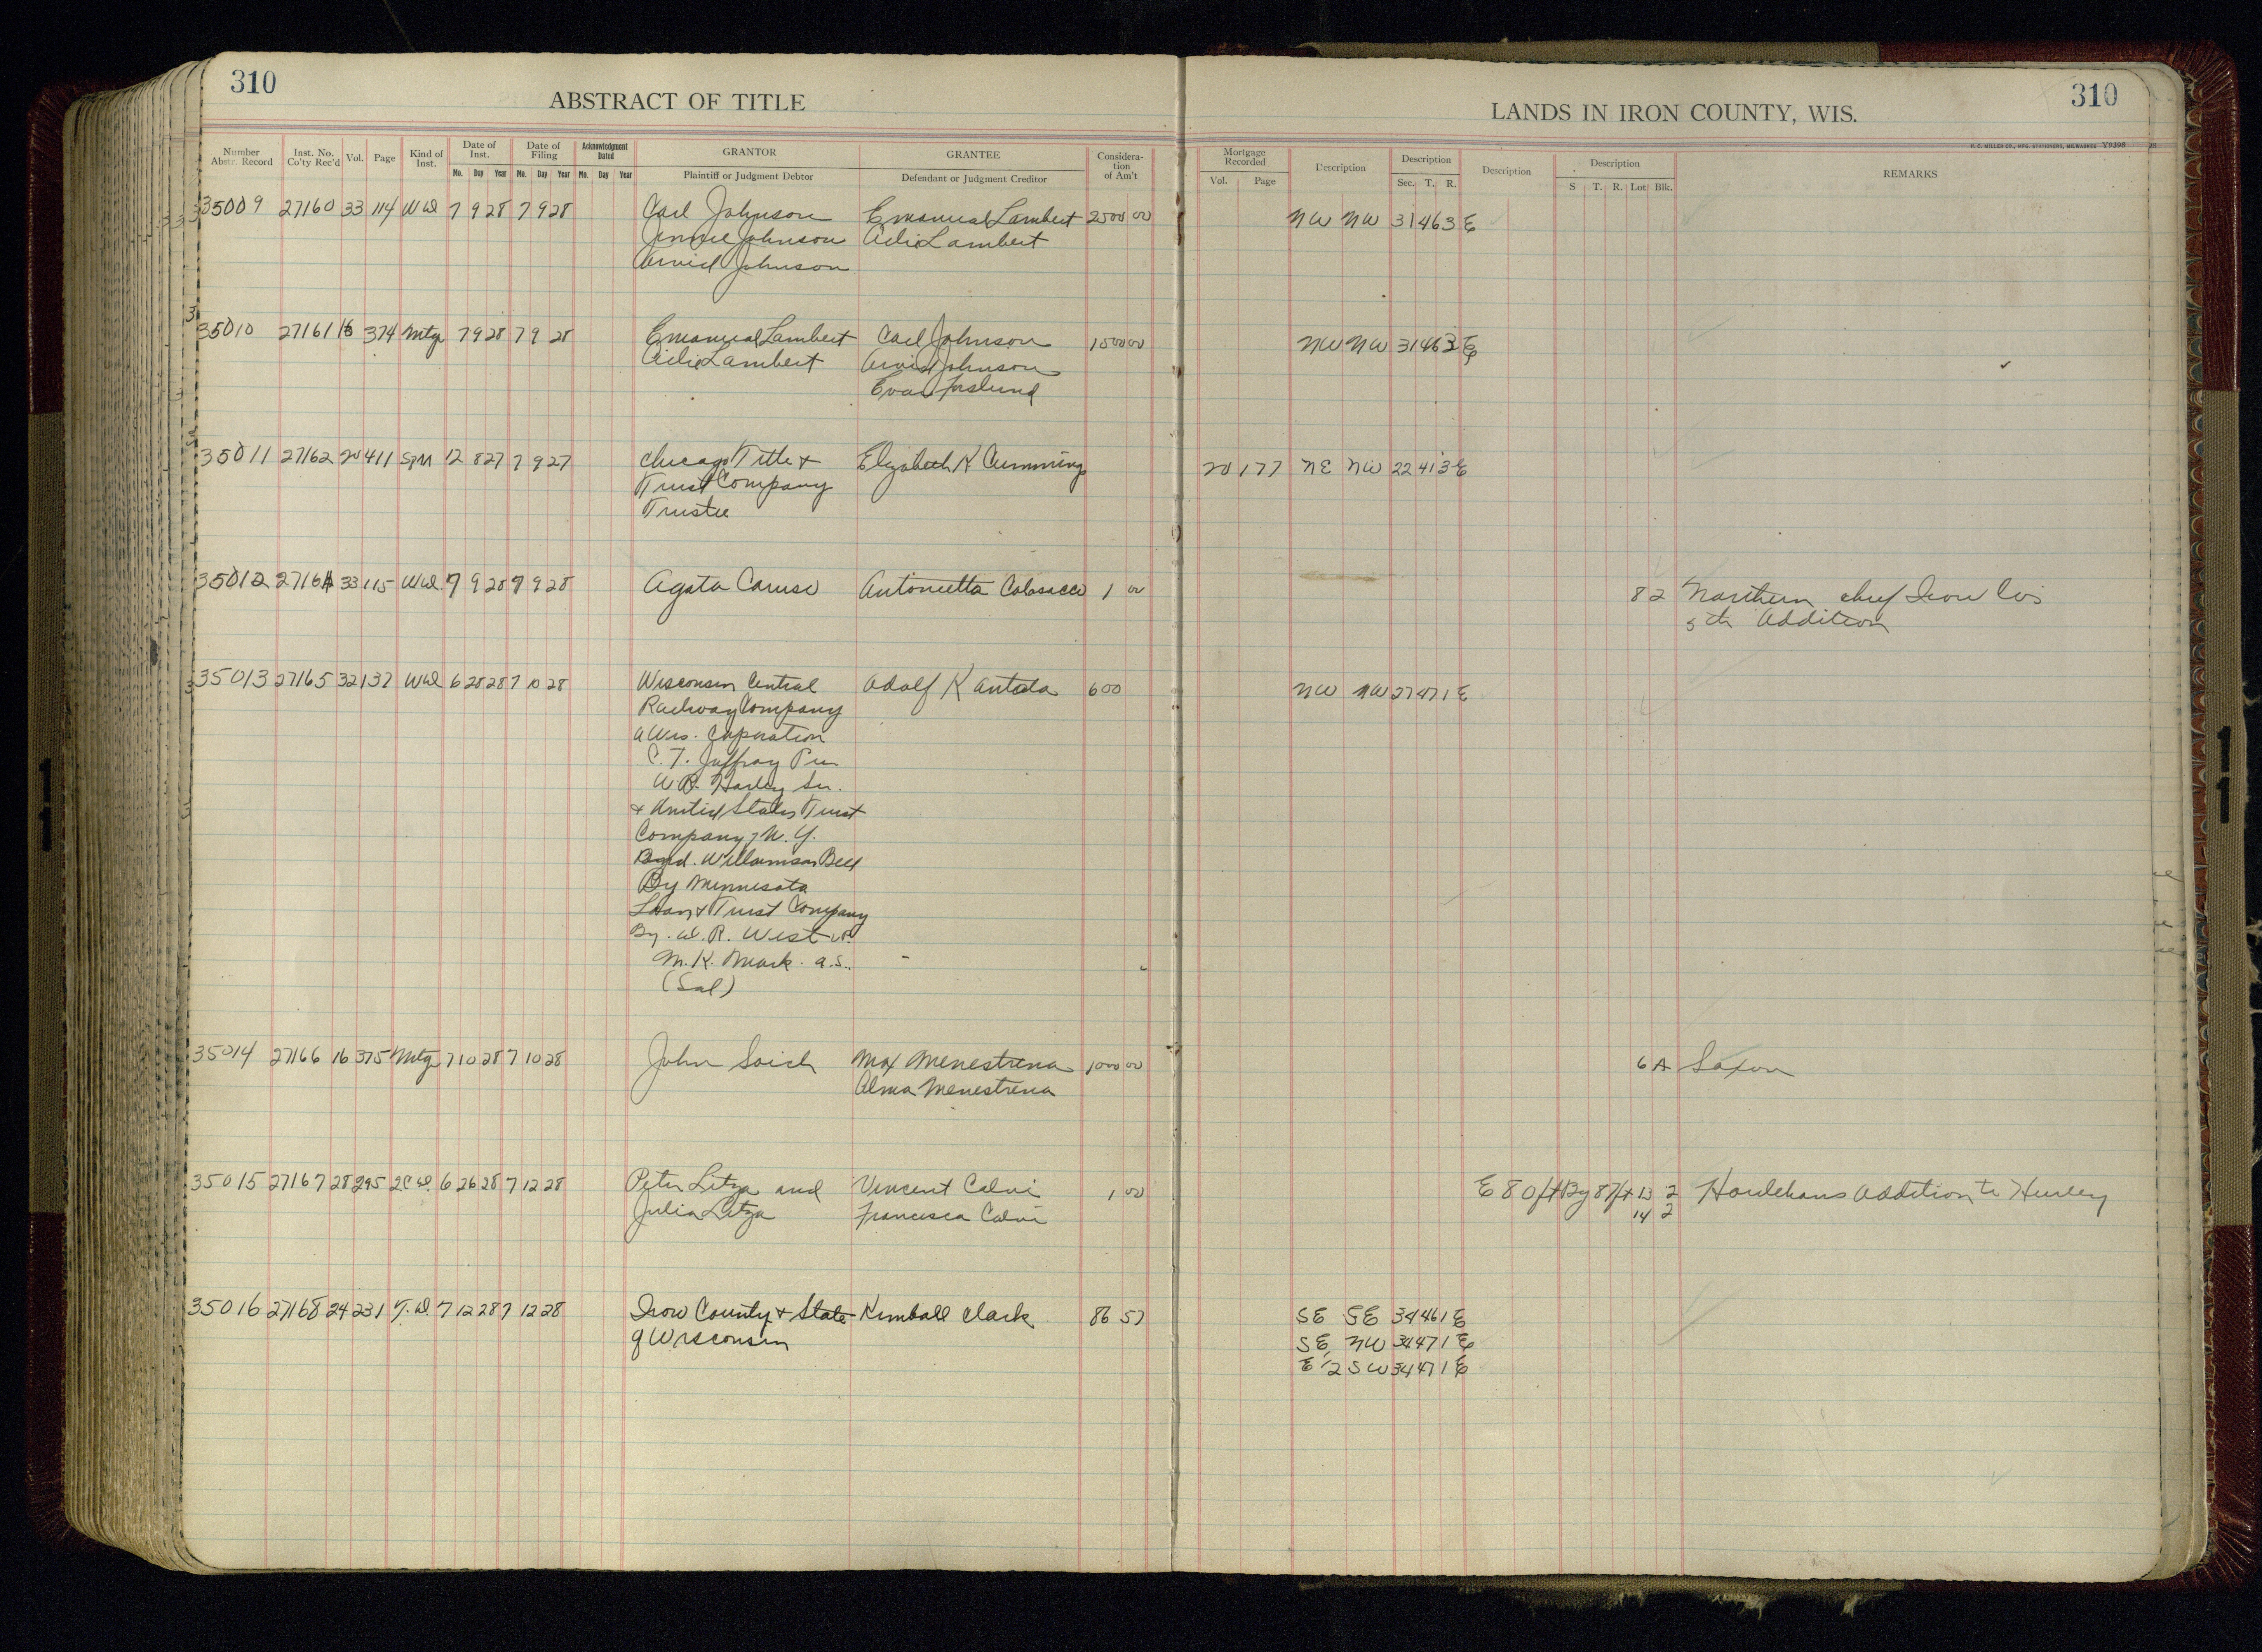 310
ABSTRACT OF TITLE
LANDS IN IRON COUNTY, WIS.
310
H. C. MILLER CO., MFG. STATIONERS, MILWAUKEE Y9398
Number Abstr. Record Inst. No. Co'ty Rec'd Vol. Page Kind of Inst. Date of Inst. Date of Filing Acknowledgment Dated GRANTOR GRANTEE Consideration of Am't Mortgage Recorded Description Description Description Description REMARKS
Mo. Day Year Mo. Day Year Mo. Day Year Plaintiff or Judgment Debtor Defendant or Judgment Creditor Vol. Page Sec. T. R. S T. R. Lot Blk.
35009 27160 33 114 WD 7 9 28 7 9 28 Carl Johnson Emanual Lambert 2500 00 NW NW 31 46 3 E
Jennie Johnson Lambert
Arvid Johnson
35010 27161 16 374 Mtg 7 9 28 7 9 28 Emanual Lambert Carl Johnson 1500 00 NW NW 31 46 3 E
Lambert Arvid Johnson
35011 27162 20 411 SPM 12 8 27 7 9 27 Chicago Title + Elizabeth K Cummings 20 177 NE NW 22 41 3 E
Trust Company
Trustee
35012 27164 33 115 WD. 7 9 28 7 9 28 Agata Caruso Antonietta Colasacco 1 00 82 Northern Chief Iron Co's
5th Addition
35013 27165 32 137 WD 6 28 28 7 10 28 Wisconsin Central Adolf Kantola 600 NW NW 27 47 1 E
Railway Company
a Wis. Corporation
C. T. Jaffray Pres
W.R. Harley Sec.
+ United States Trust
Company, N.Y.
Williamson Bell
By Minnesota
Loan + Trust Company
By. W. R. West V.P.
M. K. Mark. A.S.
(Seal)
35014 27166 16 375 Mtg 7 10 28 7 10 28 John Soich Max Menestrina 1000 00 6 A Saxon
Alma Menestrina
35015 27167 28 295 2CD. 6 26 28 7 12 28 Peter Litza and Vincent Calvi 1 00 E 80 ft By 87 ft 13 2 Houlehans Addition to Hurley
Julia Litza Francesca Calvi 14 2
35016 27168 24 231 T.D. 7 12 28 7 12 28 Iron County + State Kimball Clark 86 57 SE SE 34 46 1 E
of Wisconsin SE NW 34 47 1 E
E 1/2 SW 34 47 1 E